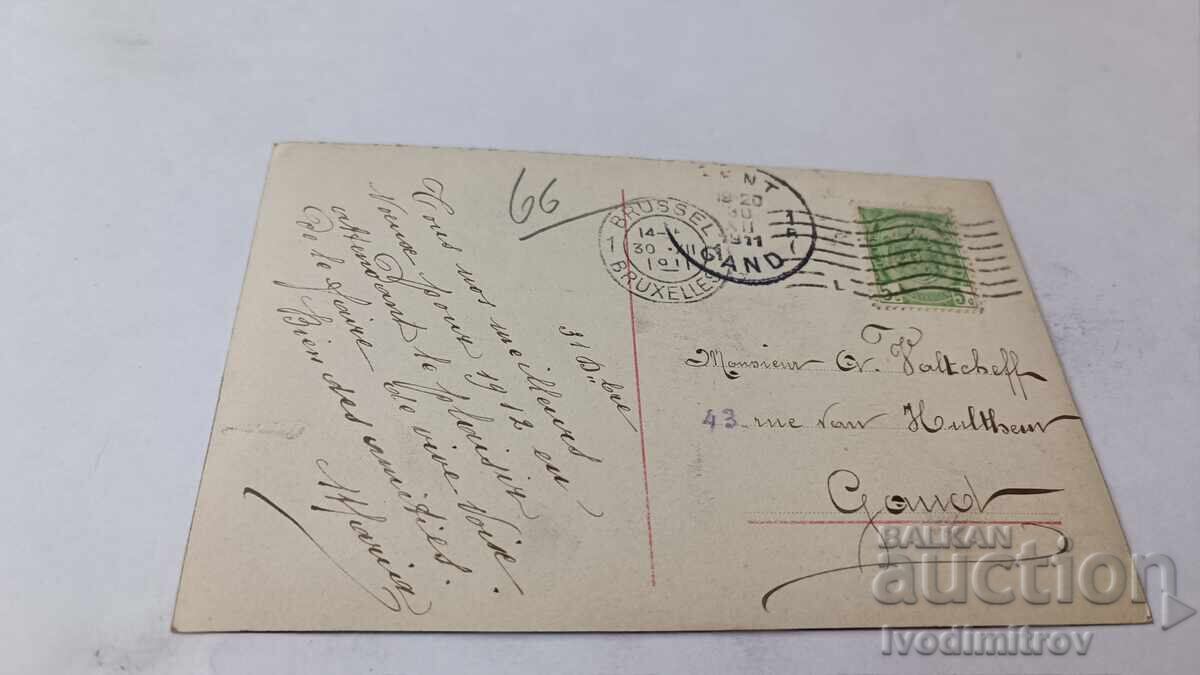 66
31 D.bre
Tous nos meilleurs
Voeux pour 1912 en
attendant le plaisir
De le faire de vive voix.
Bien des amitiés.
Maria
BRUSSEL
1 14- 1
30 XII
1911
BRUXELLES
GENT
18-20
30
XII
1911
GAND
Monsieur A. Valtcheff
43 rue Van Hulthem
Gand
BALKAN
auction
Ivodimitrov